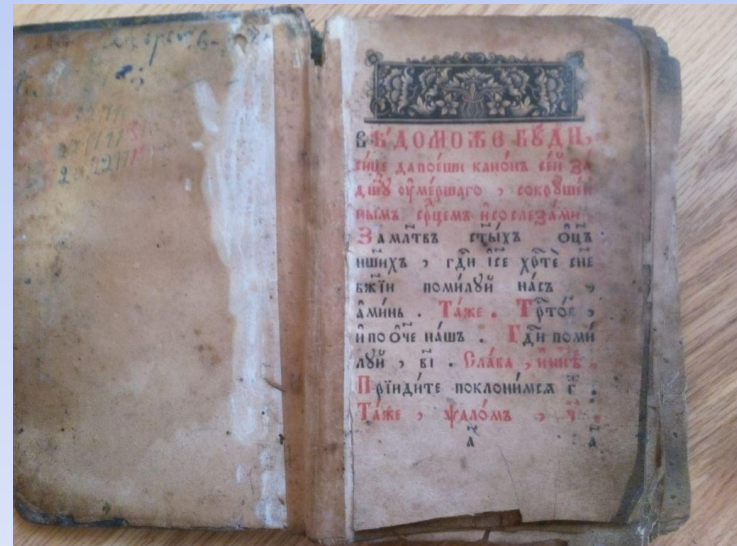 вѣ́домо же бꙋ́ди,
си́це да пое́ши кано́нъ се́й за
дш҃ꙋ ᲂу҆ме́ршаго , сокрꙋше́н
нымъ срⷣцемъ и҆ со слеза́ми .
За мл҃твъ ст҃ы́хъ ѻ҆ц҃ъ
на́шихъ , гдⷭ҇и і҆с҃е хрⷭ҇тѐ сн҃е
бж҃їи поми́лꙋй на́съ ,
а҆ми́нь . Та́же . Трⷭ҇то́е ,
и҆ по ѻ҆́ч҃е на́шъ . Гдⷭ҇и поми́
лꙋй , в҃і . Сла́ва , и҆ ны́нѣ .
Прїиди́те поклони́мсѧ г҃ .
Та́же , ѱало́мъ , ч҃ .
а҃ а҃